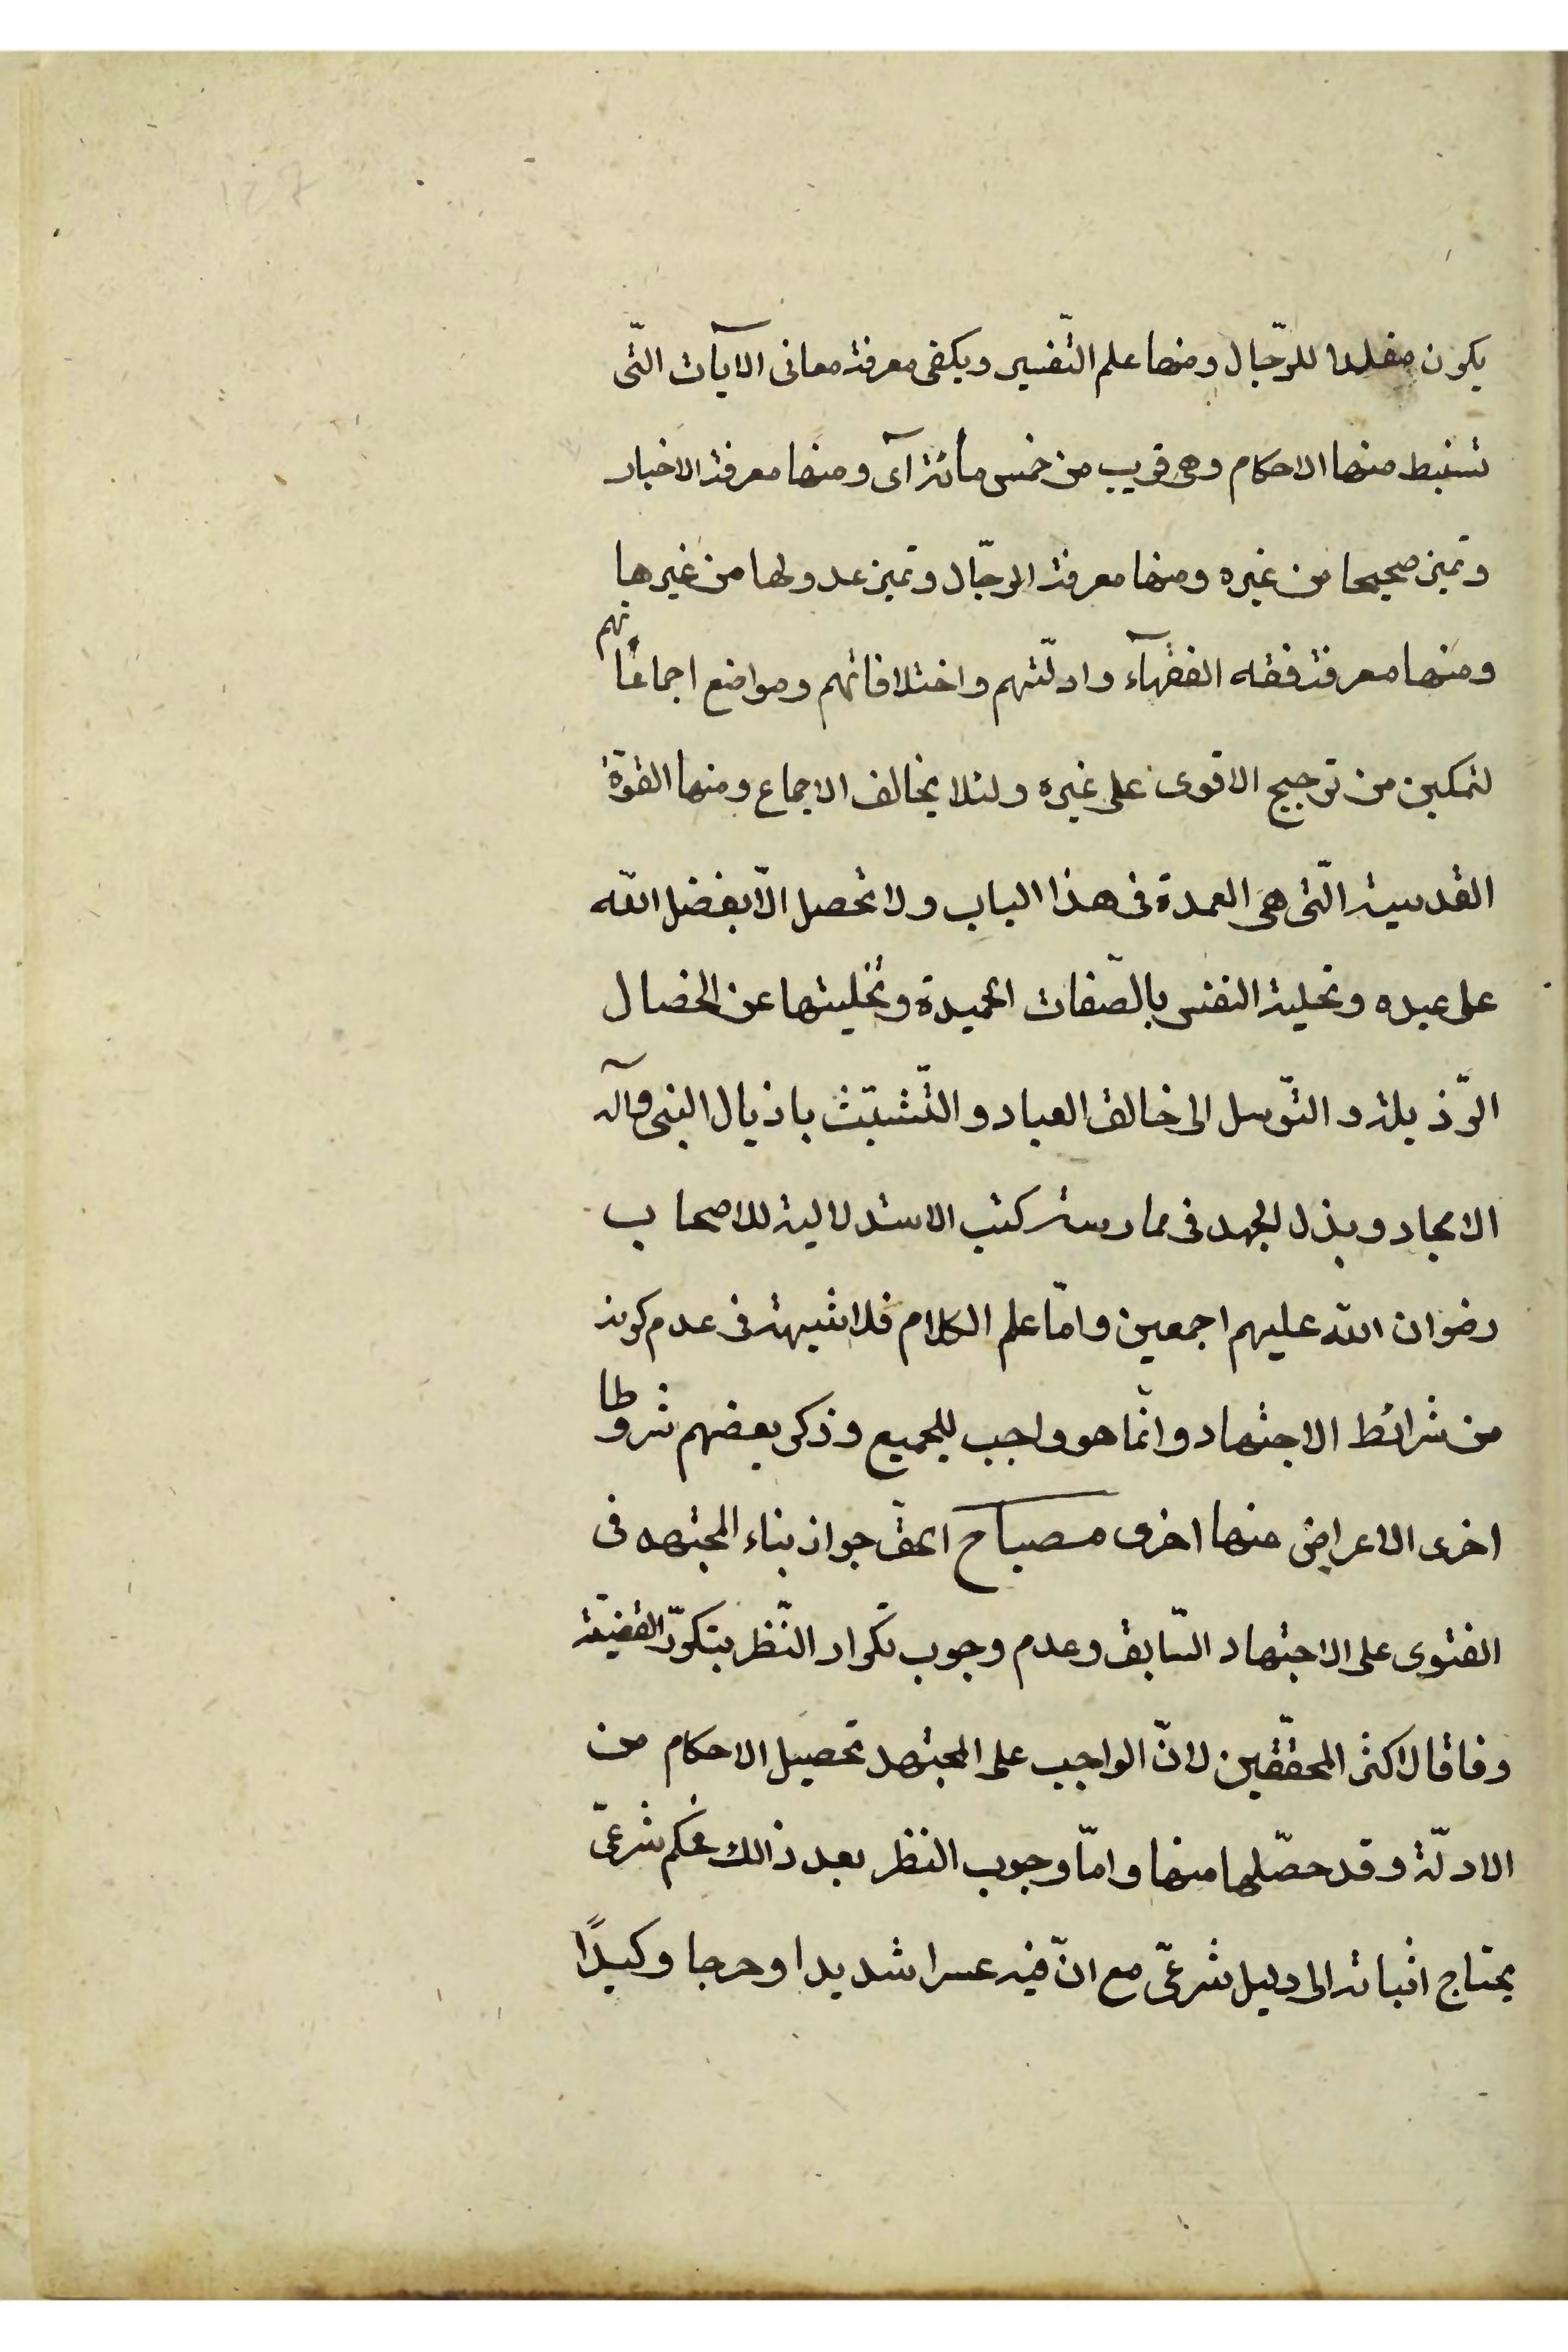 يكون مقلدا للرّجال ومنها علم التّفسير ويكفى معرفة معانى الآيات الّتى
تستنبط منها الاحكام وهى قريب من خمس مأئة آى ومنها معرفة الاخبار
وتميز صحيحا من غيره ومنها معرفة الرجّال وتميز عدولها من غيرها
ومنها معرفة فقه الفقهآء وادلّتهم واختلافاتهم ومواضع اجماعاتهم
لتمكين من ترجيح الاقوى على غيره ولئلا يخالف الاجماع ومنها القوّة
القدسية الّتى هى العمدة فى هذا الباب ولا تحصل الّا بفضل اللّه
على عبده وتحلية النفس بالصّفات الحميدة وتخليتها عن الخصال
الرّذيلة و التّوسل الى خالق العباد و التّشبّث باذيال النبى وآله
الامجاد و بذل الجهد فى ممارسة كتب الاستدلالية للاصحاب
رضوان اللّه عليهم اجمعين و امّا علم الكلام فلا شبهة فى عدم كونه
من شرائط الاجتهاد و انّما هو واجب للجميع و ذكر بعضهم شروطا
اخرى الاعراض منها اخرى مصباح الحقّ جواز بناء المجتهد فى
الفتوى على الاجتهاد السّابق و عدم وجوب تكرار النّظر بتكرّر القضيّة
وفاقا لاكثر المحقّقين لانّ الواجب على المجتهد تحصيل الاحكام من
الادلّة و قد حصّلها منها و امّا وجوب النظر بعد ذالك فحكم شرعىّ
يحتاج اثباته الى دليل شرعىّ مع انّ فيه عسرا شديدا و حرجا وكيدًا